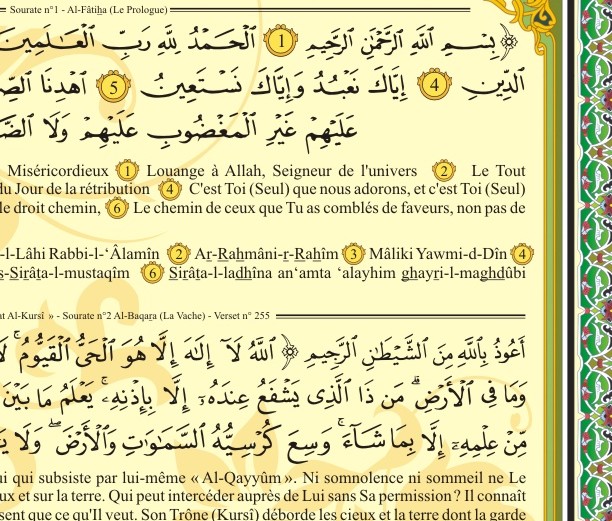 Sourate n°1 - Al-Fâtiha (Le Prologue)
﴿ بِسْمِ ٱللَّهِ ٱلرَّحْمَٰنِ ٱلرَّحِيمِ 1 ٱلْحَمْدُ لِلَّهِ رَبِّ ٱلْعَـٰلَمِينَ
ٱلدِّينِ 4 إِيَّاكَ نَعْبُدُ وَإِيَّاكَ نَسْتَعِينُ 5 ٱهْدِنَا
عَلَيْهِمْ غَيْرِ ٱلْمَغْضُوبِ عَلَيْهِمْ وَلَا
Miséricordieux 1 Louange à Allah, Seigneur de l'univers 2 Le Tout
du Jour de la rétribution 4 C'est Toi (Seul) que nous adorons, et c'est Toi (Seul)
le droit chemin, 6 Le chemin de ceux que Tu as comblés de faveurs, non pas de
-l-Lâhi Rabbi-l-‘Âlamîn 2 Ar-Rahmâni-r-Rahîm 3 Mâliki Yawmi-d-Dîn 4
s-Sirâta-l-mustaqîm 6 Sirâta-l-ladhîna an‘amta ‘alayhim ghayri-l-maghdûbi
at Al-Kursî » - Sourate n°2 Al-Baqara (La Vache) - Verset n° 255
أَعُوذُ بِٱللَّهِ مِنَ ٱلشَّيْطَـٰنِ ٱلرَّجِيمِ ﴿ ٱللَّهُ لَآ إِلَـٰهَ إِلَّا هُوَ ٱلْحَىُّ ٱلْقَيُّومُ ۚ
وَمَا فِى ٱلْأَرْضِ ۗ مَن ذَا ٱلَّذِى يَشْفَعُ عِندَهُۥٓ إِلَّا بِإِذْنِهِۦ ۚ يَعْلَمُ مَا بَيْنَ
مِّنْ عِلْمِهِۦٓ إِلَّا بِمَا شَآءَ ۚ وَسِعَ كُرْسِيُّهُ ٱلسَّمَـٰوَٰتِ وَٱلْأَرْضَ ۖ وَلَا
ui qui subsiste par lui-même « Al-Qayyûm ». Ni somnolence ni sommeil ne Le
ux et sur la terre. Qui peut intercéder auprès de Lui sans Sa permission ? Il connaît
sent que ce qu'Il veut. Son Trône (Kursî) déborde les cieux et la terre dont la garde